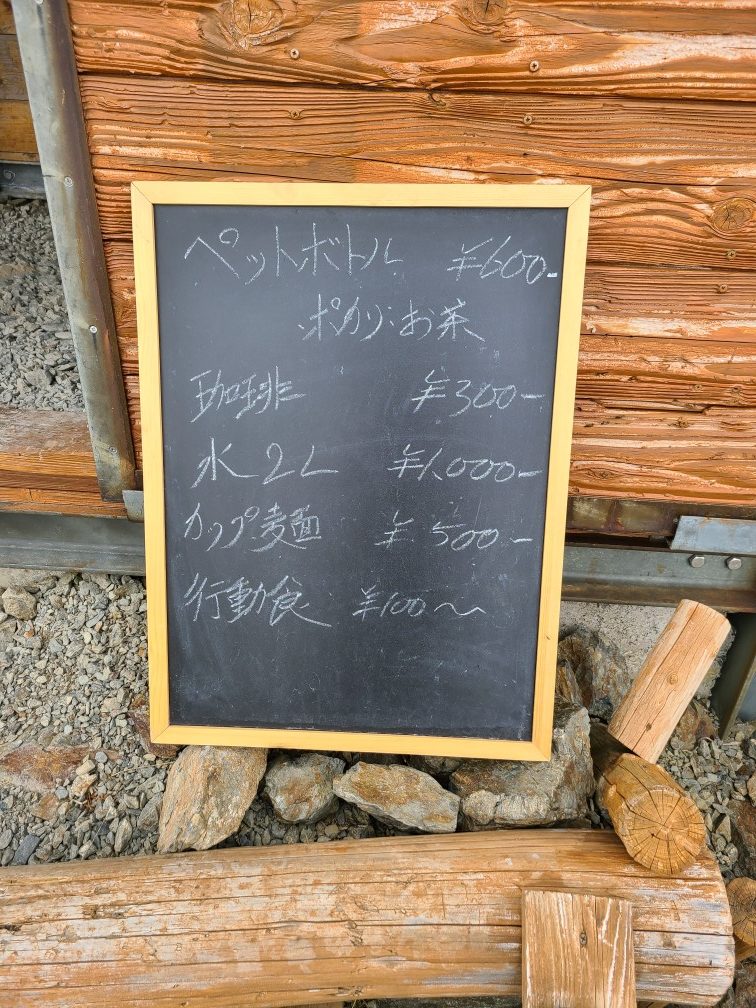 ペットボトル ¥600-
ポカリ・お茶
珈琲 ¥300-
水2L ¥1,000-
カップ麺 ¥500-
行動食 ¥100〜